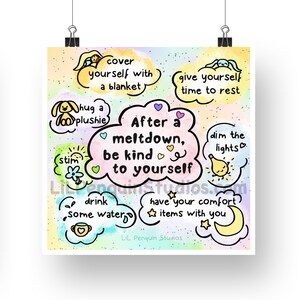 cover
yourself with
a blanket
give yourself
time to rest
hug a
plushie
After a
meltdown,
be kind
to yourself
dim the
lights
stim
LiL Penguin Studios.com
drink
some water
have your comfort
items with you
LiL Penguin Studios